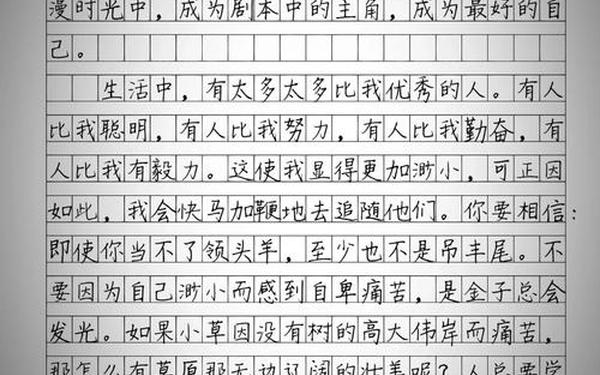 漫时光中，成为剧本中的主角，成为最好的自
己。
生活中，有太多太多比我优秀的人。有人
比我聪明，有人比我努力，有人比我勤奋，有
人比我有毅力。这使我显得更加渺小，可正因
如此，我会快马加鞭地去追随他们。你要相信：
即使你当不了领头羊，至少也不是吊丰尾。不
要因为自己渺小而感到自卑痛苦，是金子总会
发光。如果小草因没有树的高大伟岸而痛苦，
那怎么有草原那无边辽阔的壮美呢？人总要学